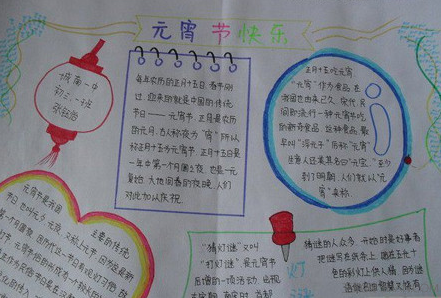 元宵节快乐
城南一中
初三.一班
每年农历的正月十五日,春节刚
过,迎来的就是中国的传统
节日——元宵节。正月是农历
的元月,古人称夜为"宵"所以
称正月十五为元宵节。正月十五日是
一年中第一个月圆之夜,也是一元
复始,大地回春的夜晚,人们
对此加以庆祝
正月十五吃元宵,
"元宵"作为食品,在
我国也由来已久。宋代,民
间即流行一种元宵节吃
的新奇食品。这种食品,最
早叫"浮元子"后称"元宵"
生意人还美其名曰"元宝"。
到了明朝,人们就以"元
宵"来称
元宵节是我国
主要的传统
"猜灯谜"又叫
"打灯谜"是元宵节
后增的一项活动,出现
猜谜的人众多,开始时是好事者
把谜写在纸条上,贴在五光十
色的彩灯上供人猜,因为谜
语能启迪智慧又饶有